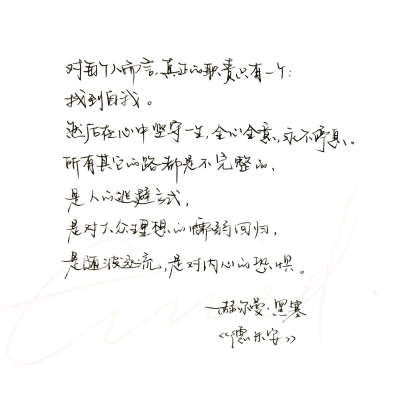 对每个人而言,真正的职责只有一个:
找到自我。
然后在心中坚守一生,全心全意,永不停息。
所有其它的路都是不完整的,
是人的逃避方式,
是对大众理想的懦弱回归,
是随波逐流,是对内心的恐惧。
——赫尔曼·黑塞
《德米安》